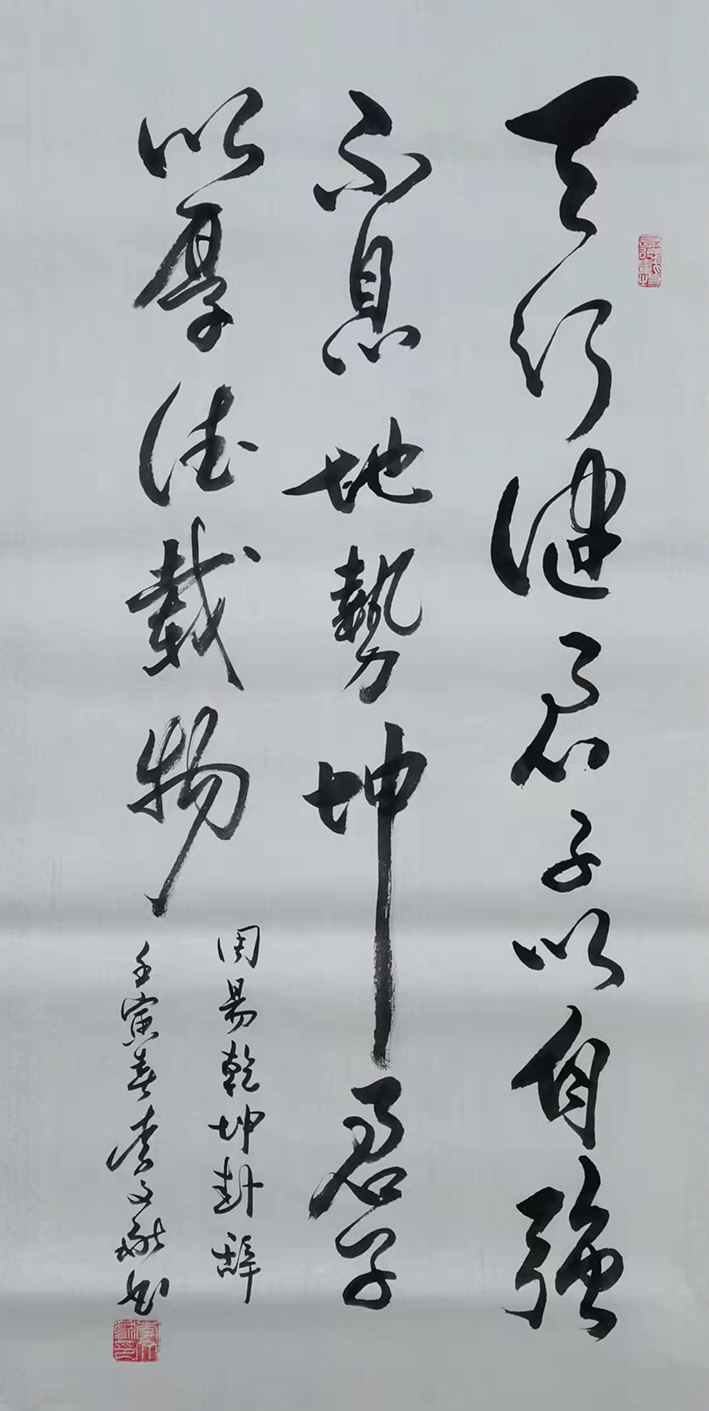 天行健君子以自強
不息地勢坤君子
以厚德載物
周易乾坤卦辭
壬寅春李文啟书